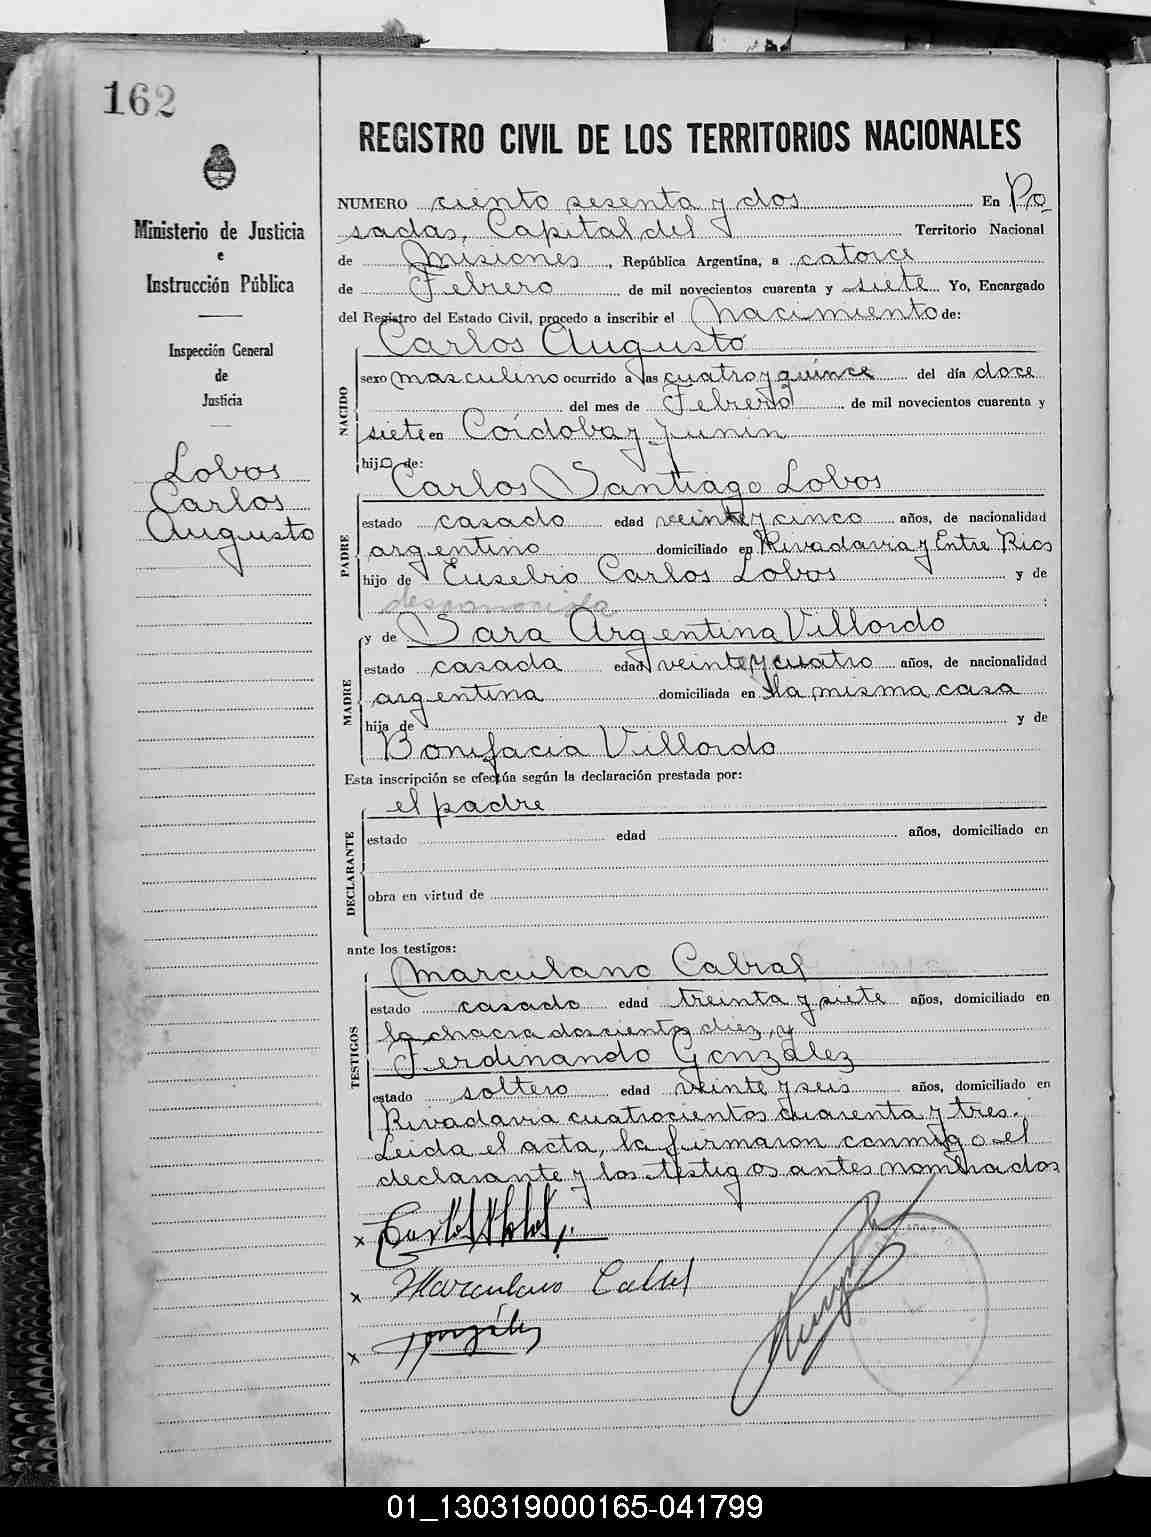 162
Ministerio de Justicia
e
Instrucción Pública
Inspección General
de
Justicia
Lobos
Carlos
Augusto
REGISTRO CIVIL DE LOS TERRITORIOS NACIONALES
NUMERO ciento sesenta y dos En Po
sadas, Capital del Territorio Nacional
de Misiones, República Argentina, a catorce
de Febrero de mil novecientos cuarenta y siete Yo, Encargado
del Registro del Estado Civil, procedo a inscribir el Nacimiento de:
NACIDO
Carlos Augusto
sexo masculino ocurrido a las cuatro y quince del día doce
del mes de Febrero de mil novecientos cuarenta y
siete en Córdoba y Junin
hijo de:
PADRE
Carlos Santiago Lobos
estado casado edad veinte y cinco años, de nacionalidad
argentino domiciliado en Rivadavia y Entre Rios
hijo de Eusebio Carlos Lobos y de
desconocida :
MADRE
y de Sara Argentina Villordo
estado casada edad veinte y cuatro años, de nacionalidad
argentina domiciliada en la misma casa
hija de y de
Bonifacia Villordo
Esta inscripción se efectúa según la declaración prestada por:
DECLARANTE
el padre
estado edad años, domiciliado en
obra en virtud de
ante los testigos:
TESTIGOS
Marculano Cabral
estado casado edad treinta y siete años, domiciliado en
la chacra doscientos diez, y
Ferdinando González
estado soltero edad veinte y seis años, domiciliado en
Rivadavia cuatrocientos cuarenta y tres.
Leida el acta, la firmaron conmigo el
declarante y los testigos antes nombrados
x
x Marculano Cabral
x González
01_130319000165-041799